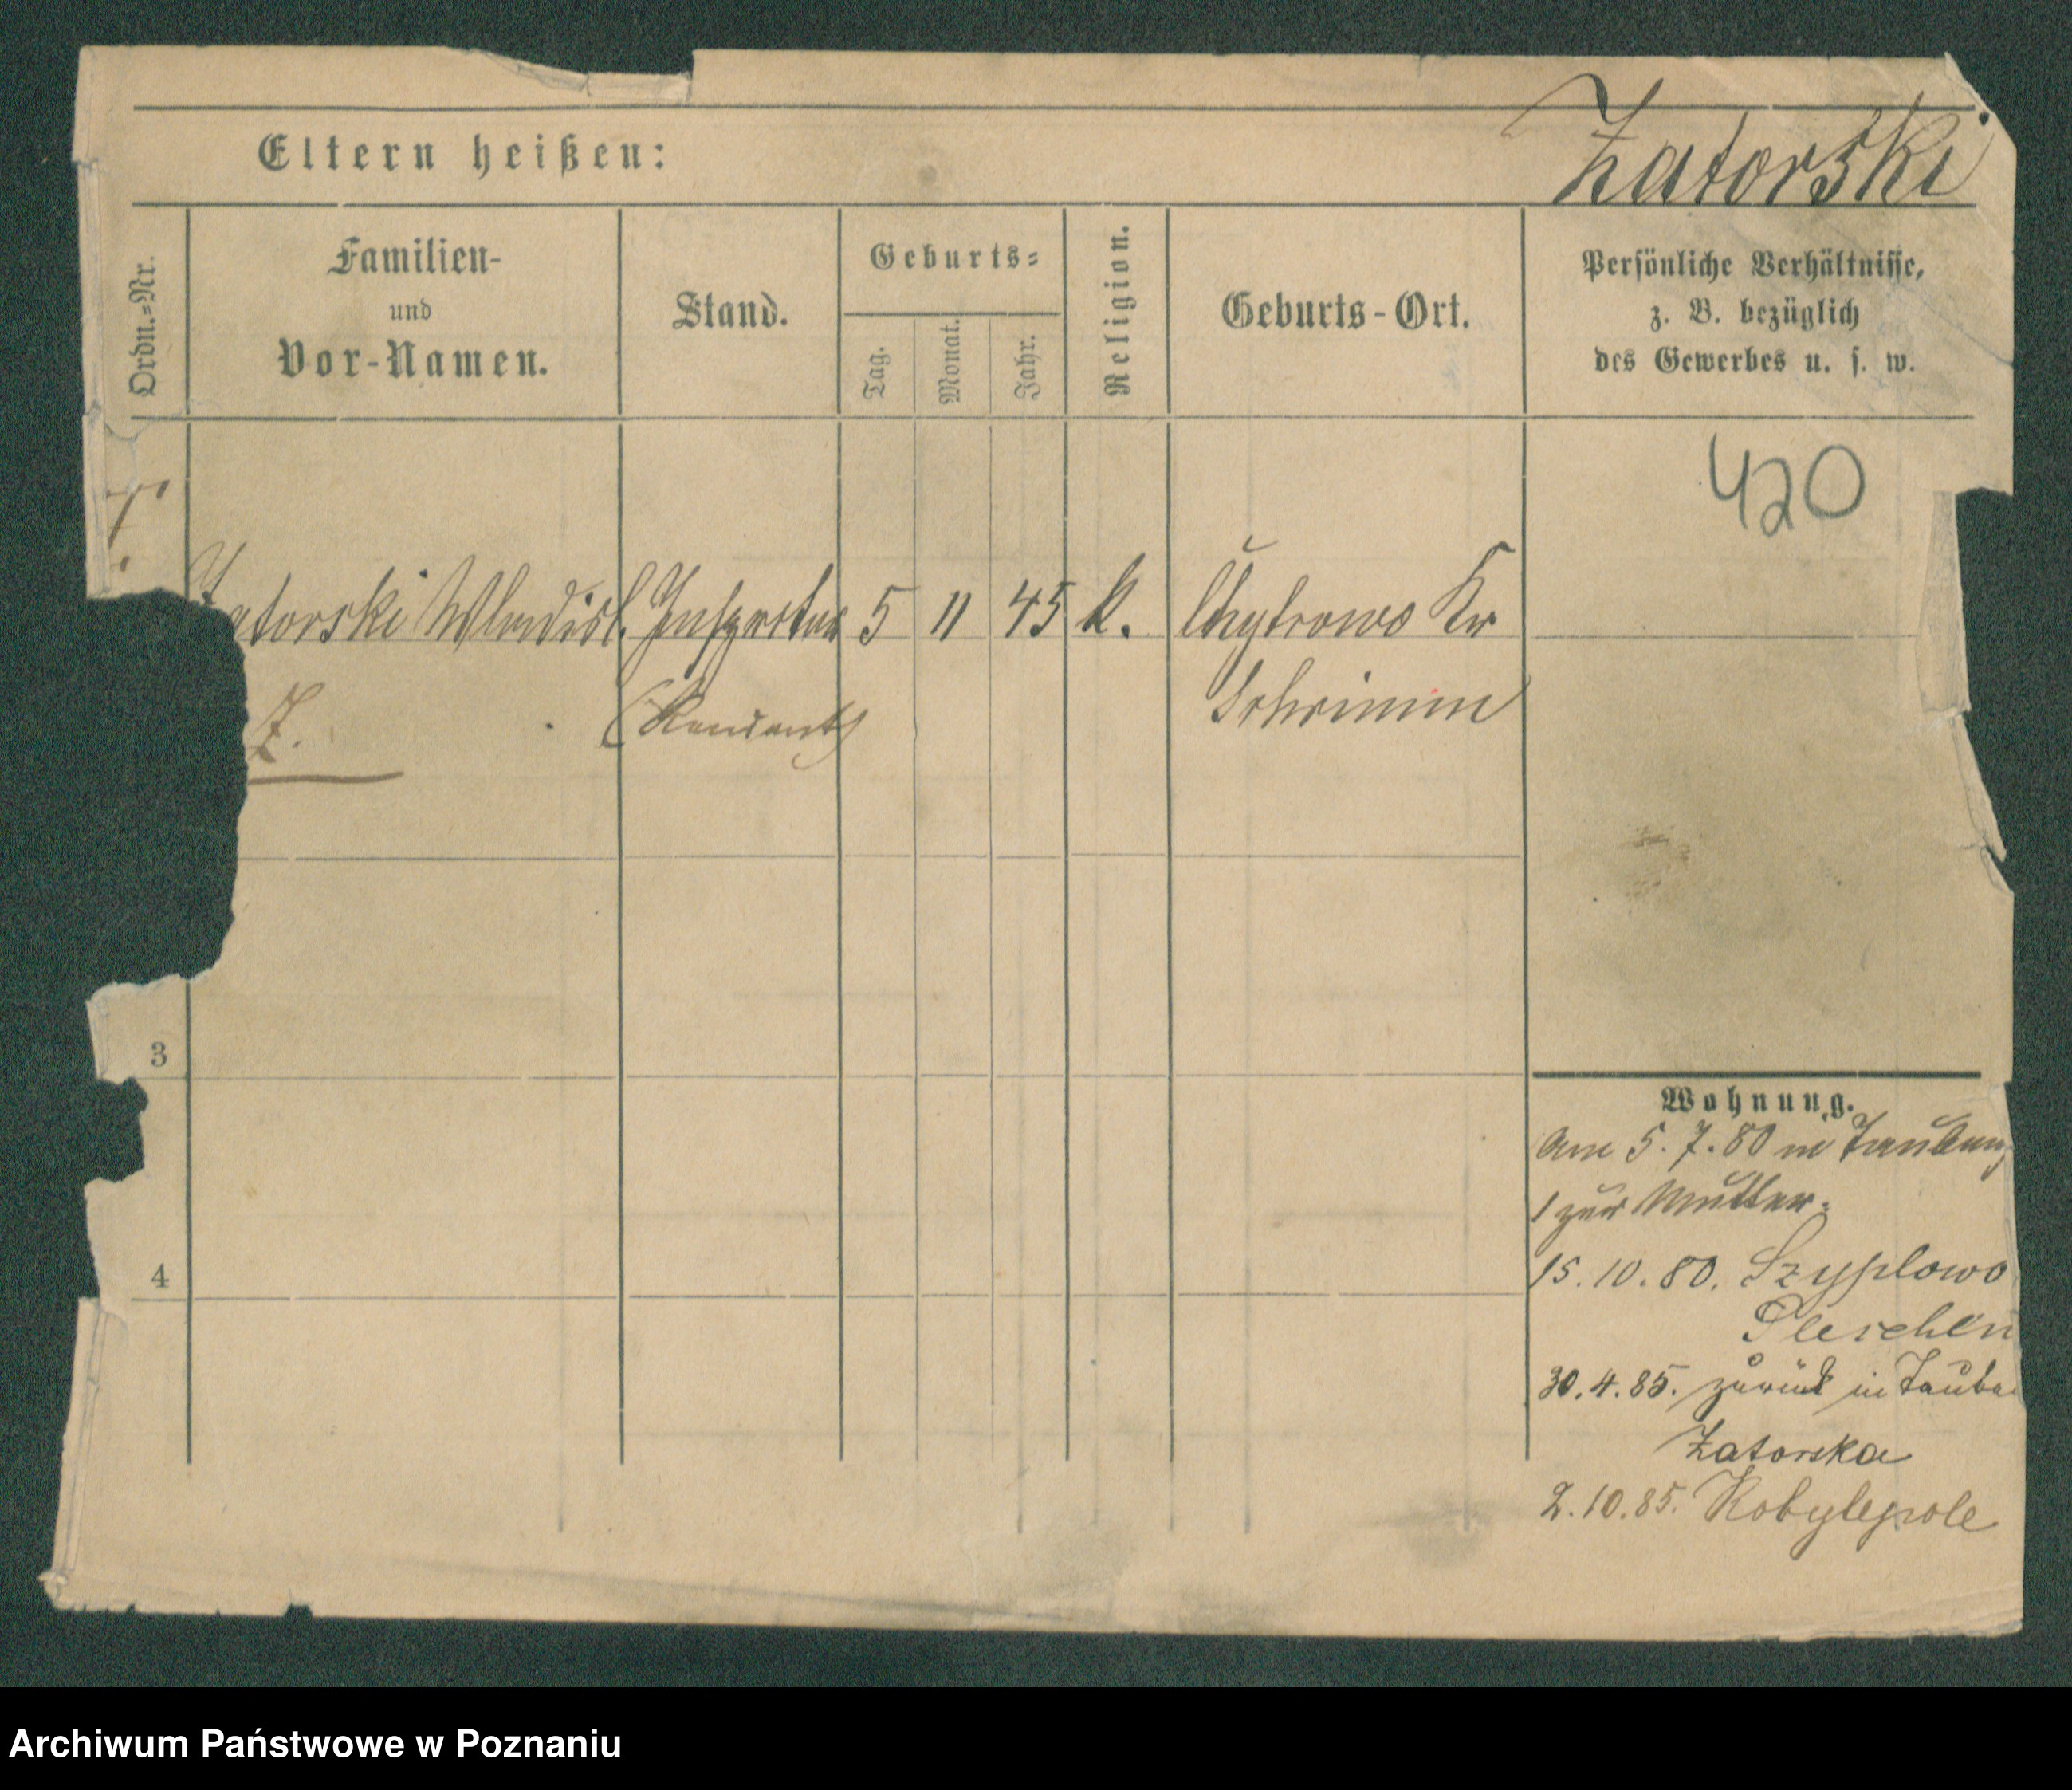 Zatorski
Eltern heißen:
Ordn.=Nr.
Familien-
und
Vor-Namen.
Stand.
Geburts=
Tag.
Monat.
Jahr.
Religion.
Geburts-Ort.
Persönliche Verhältnisse,
z. B. bezüglich
des Gewerbes u. s. w.
420
Zatorski Wladisl. Inspector 5 11 45 k. Chytrowo Kr
Z. (Rendant) Schrimm
3
4
Wohnung.
Am 5.7.80 in Tauben
1 zur Mutter.
15.10.80. Szyplowo
Pleschen
30.4.85. zurück in Tauben
Zatorska
2.10.85. Kobylepole
Archiwum Państwowe w Poznaniu